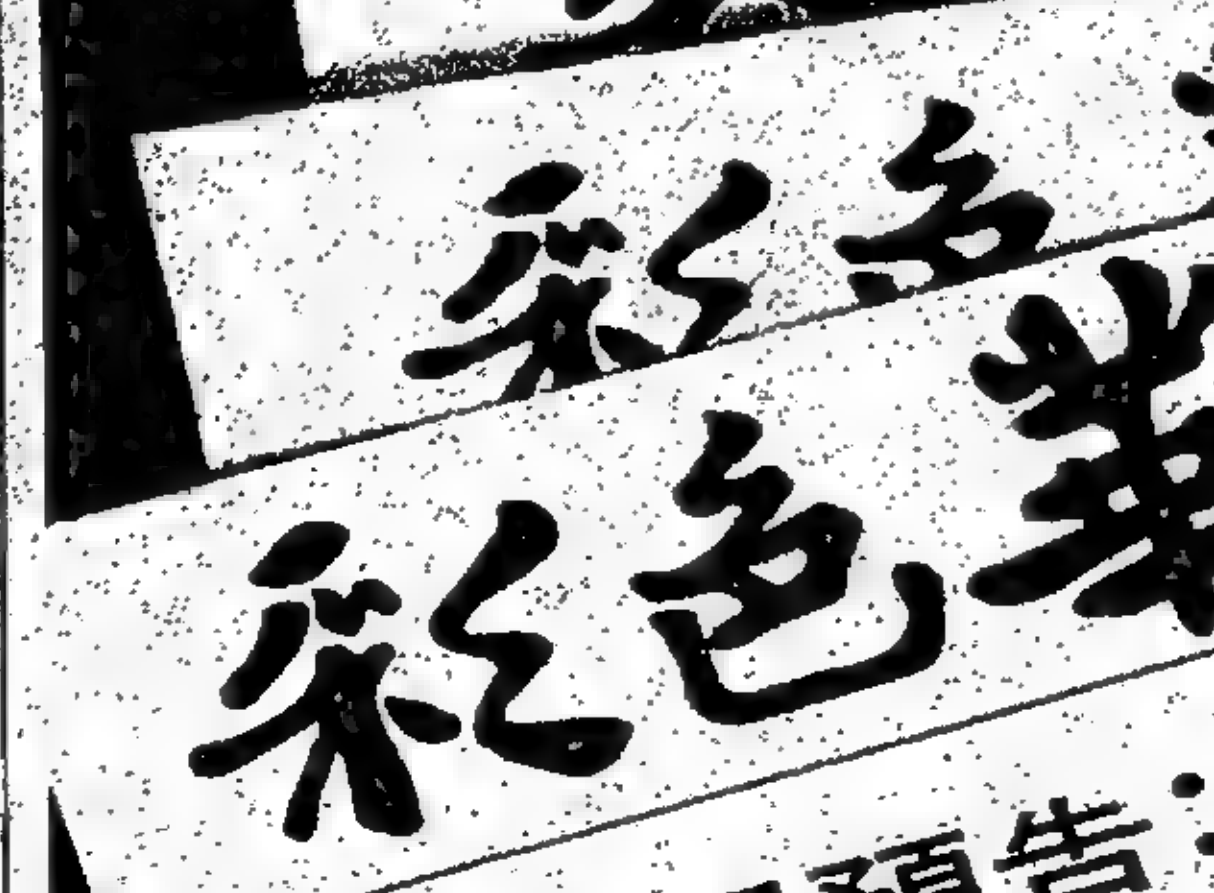 彩色
彩色
預告